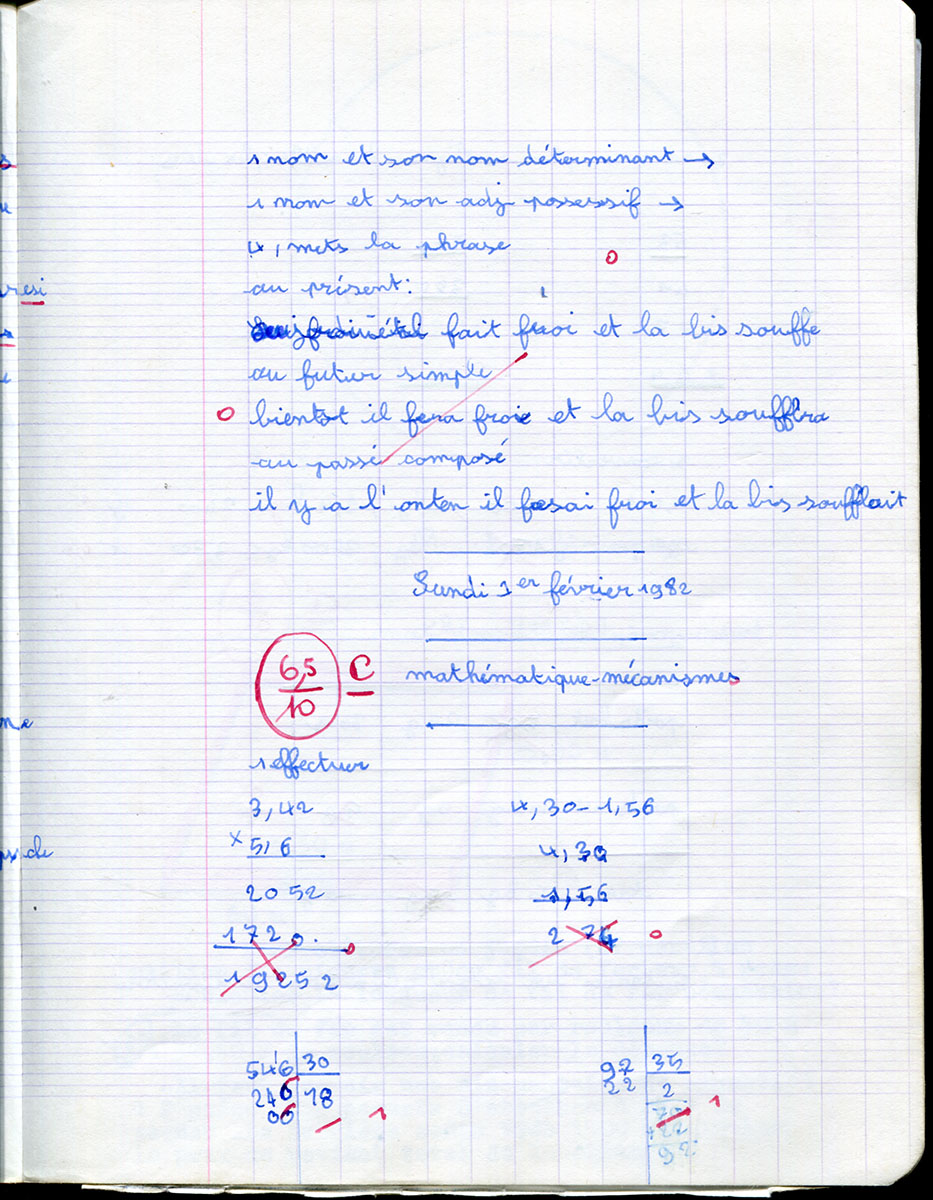 1 nom et son nom déterminant →
1 nom et son adj possessif →
4, mets la phrase
0
au présent:
fait froi et la bis souffe
au futur simple
0 bientot il fera froie et la bis soufflra
au passé composé
il y a l'onten il fesai froi et la bis soufflait
Lundi 1er février 1982
6,5/10 C mathématique-mécanismes
1 effectuer
3,42
× 5,6
2052
1720.
0
19252
4,30-1,56
4,30
-1,56
2 74
0
546 30
246 18
06
1
92 35
22 2
70
+22
92
1
resi